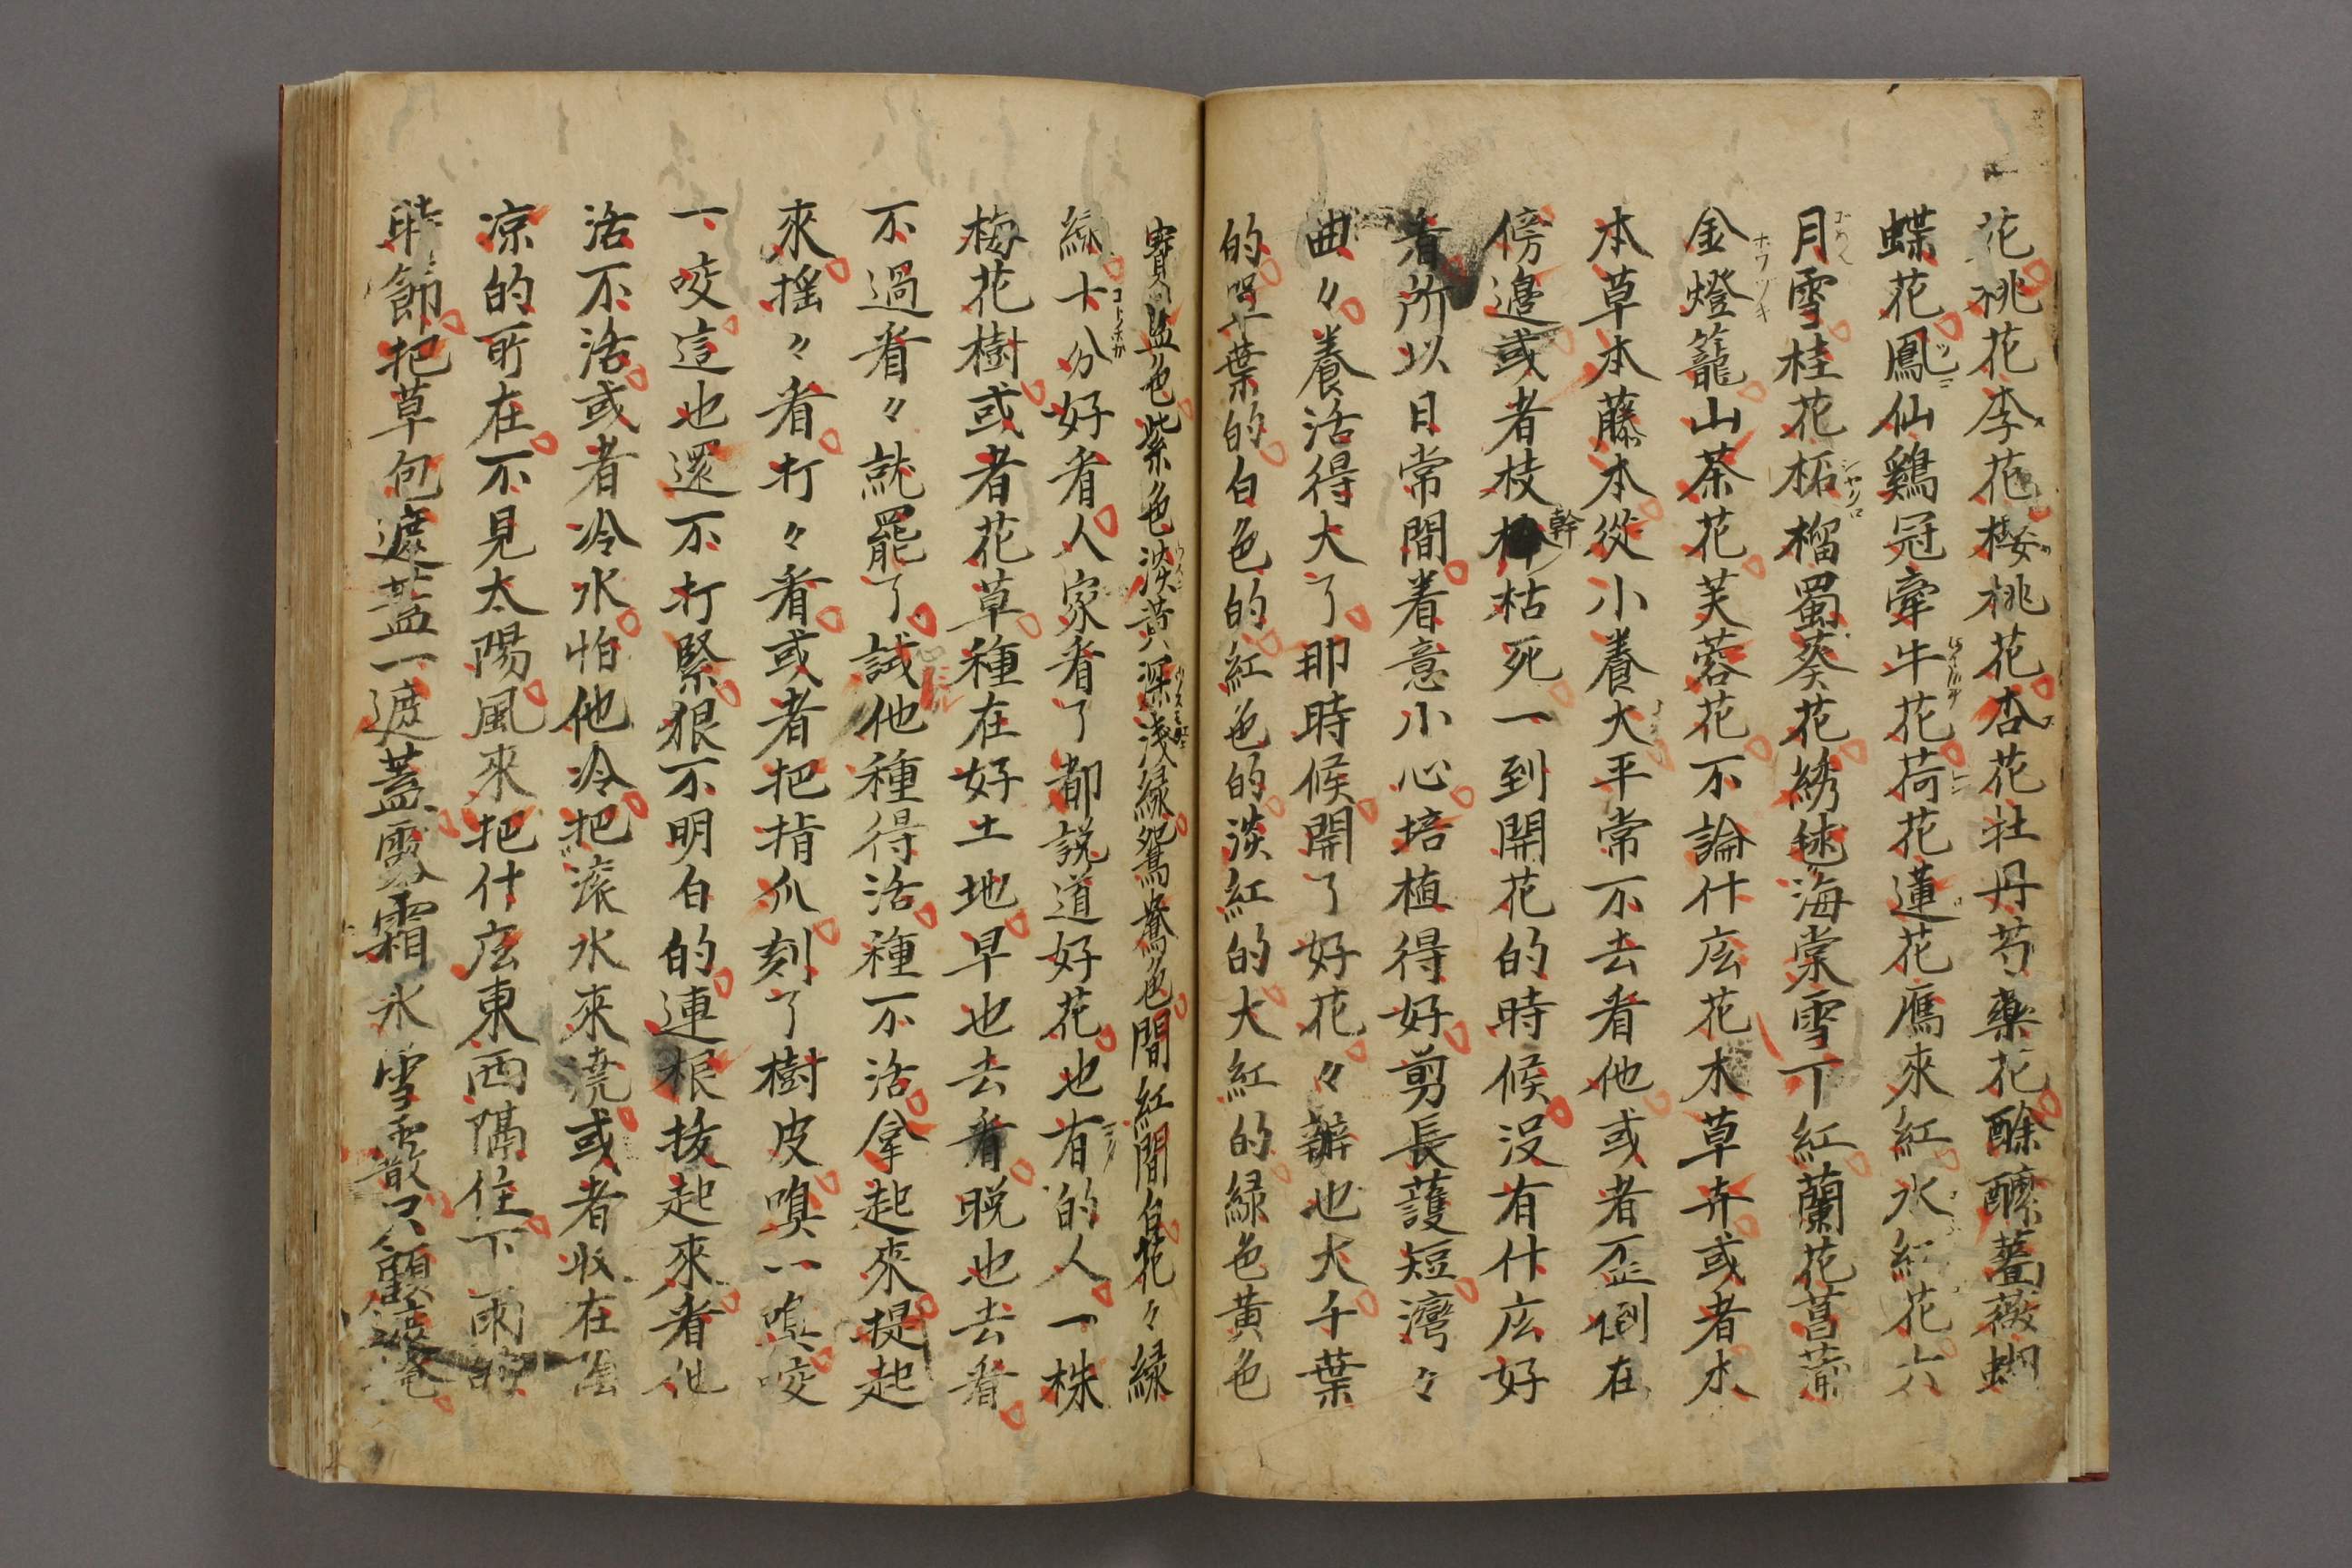 花桃花李花櫻桃花杏花牡丹芍藥花酴醿薔薇蝴
蝶花鳳仙鷄冠牽牛花荷花蓮花鴈來紅水紅花六
月雪桂花柘榴蜀葵花綉毬海棠雪下紅蘭花菖蒲
金燈籠山茶花芙蓉花不論什庅花木草卉或者木
本草本藤本從小養大平常不去看他或者歪倒在
傍邉或者枝幹枯死一到開花的時候没有什庅好
看所以日常間着意小心培植得好剪長護短灣々
曲々養活得大了那時候開了好花々瓣也大千葉
的單葉的白色的紅色的淡紅的大紅的緑色黄色
寳藍色紫色淡黄深淺緑鴛鴦色間紅間白花々緑
緑十分好看人家看了都説道好花也有的人一株
梅花樹或者花草種在好土地早也去看晩也去看
不過看々就罷了試他種得活種不活拿起來提起
來揺々看打々看或者把指爪刻了樹皮嗅一嗅咬
一咬這也還不打緊狠不明白的連根拔起來看他
活不活或者冷水怕他冷把滚水來澆或者收在陰
凉的所在不見太陽風來把什庅東西隔住下雨的
時節把草包遮蓋一遮蓋露霜氷雪雹散只顧遮